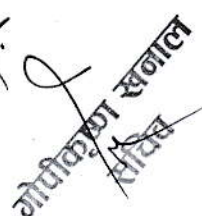 गोपीकृष्ण खनाल
सचिव